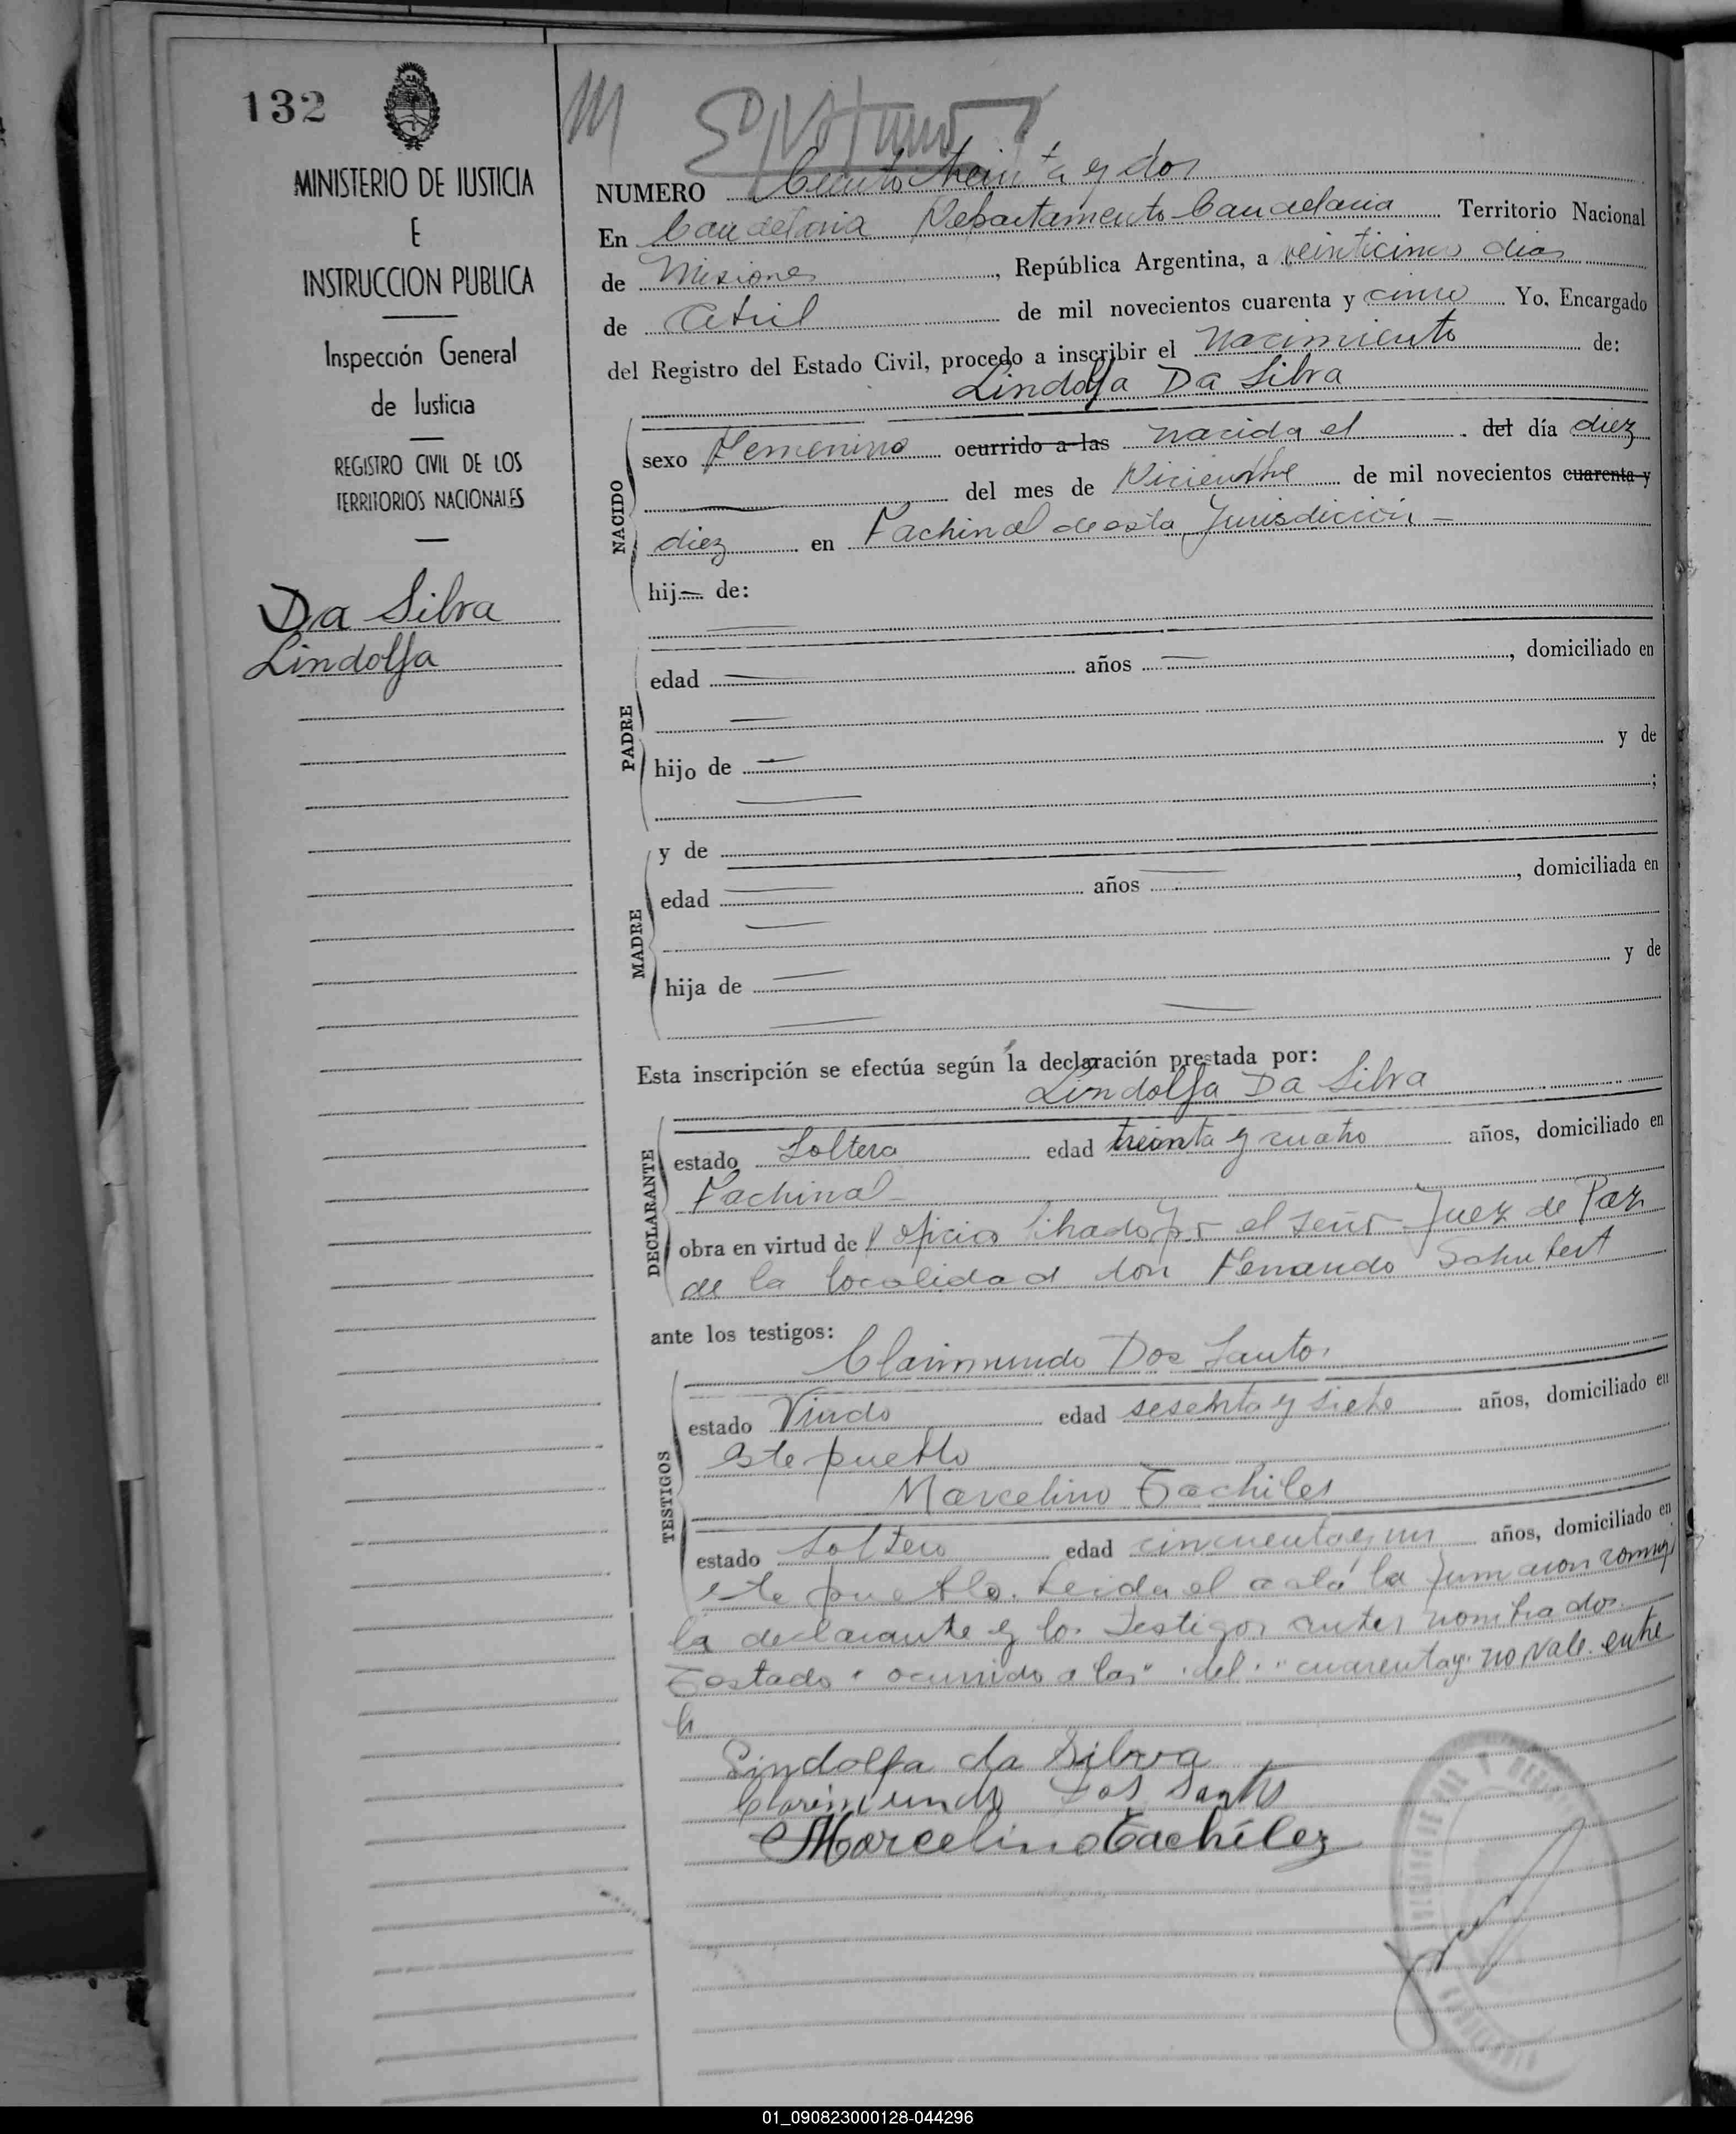 132
MINISTERIO DE JUSTICIA
E
INSTRUCCION PUBLICA
Inspección General
de Justicia
REGISTRO CIVIL DE LOS
TERRITORIOS NACIONALES
Da Silva
Lindolfa
NUMERO Ciento treinta y dos
En Candelaria Departamento Candelaria Territorio Nacional
de Misiones, República Argentina, a veinticinco dias
de Abril de mil novecientos cuarenta y cinco Yo, Encargado
del Registro del Estado Civil, procedo a inscribir el Nacimiento de:
Lindolfa Da Silva
NACIDO
sexo Femenino ocurrido a las nacida el del día diez
del mes de Diciembre de mil novecientos cuarenta y
diez en Fachinal de esta Jurisdicción -
hij de:
PADRE
edad años , domiciliado en
hijo de y de
;
y de
MADRE
edad años , domiciliada en
hija de y de
Esta inscripción se efectúa según la declaración prestada por:
Lindolfa Da Silva
DECLARANTE
estado Soltera edad treinta y cuatro años, domiciliado en
Fachinal
obra en virtud de oficio librado por el señor Juez de Paz
de la localidad don Fernando Schubert
ante los testigos:
Clarimundo Dos Santos
TESTIGOS
estado Viudo edad sesenta y siete años, domiciliado en
este pueblo
Marcelino Tachiles
estado Soltero edad cincuenta y un años, domiciliado en
este pueblo. Leida el acta la firmaron conmigo
la declarante y los testigos antes nombrados.
Testado "ocurrido a las" "del" "cuarenta y" no vale. entre
Lindolfa da Silva
Clarimundo Dos Santos
Marcelino Tachilez
01_090823000128-044296